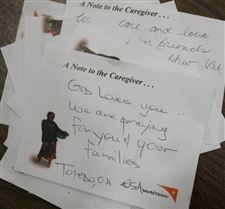 A Note to the Caregiver...
care and love
friends
USA
A Note to the Caregiver...
God loves you...
We are praying
for you & your
families
Toledo, OH USA
World Vision